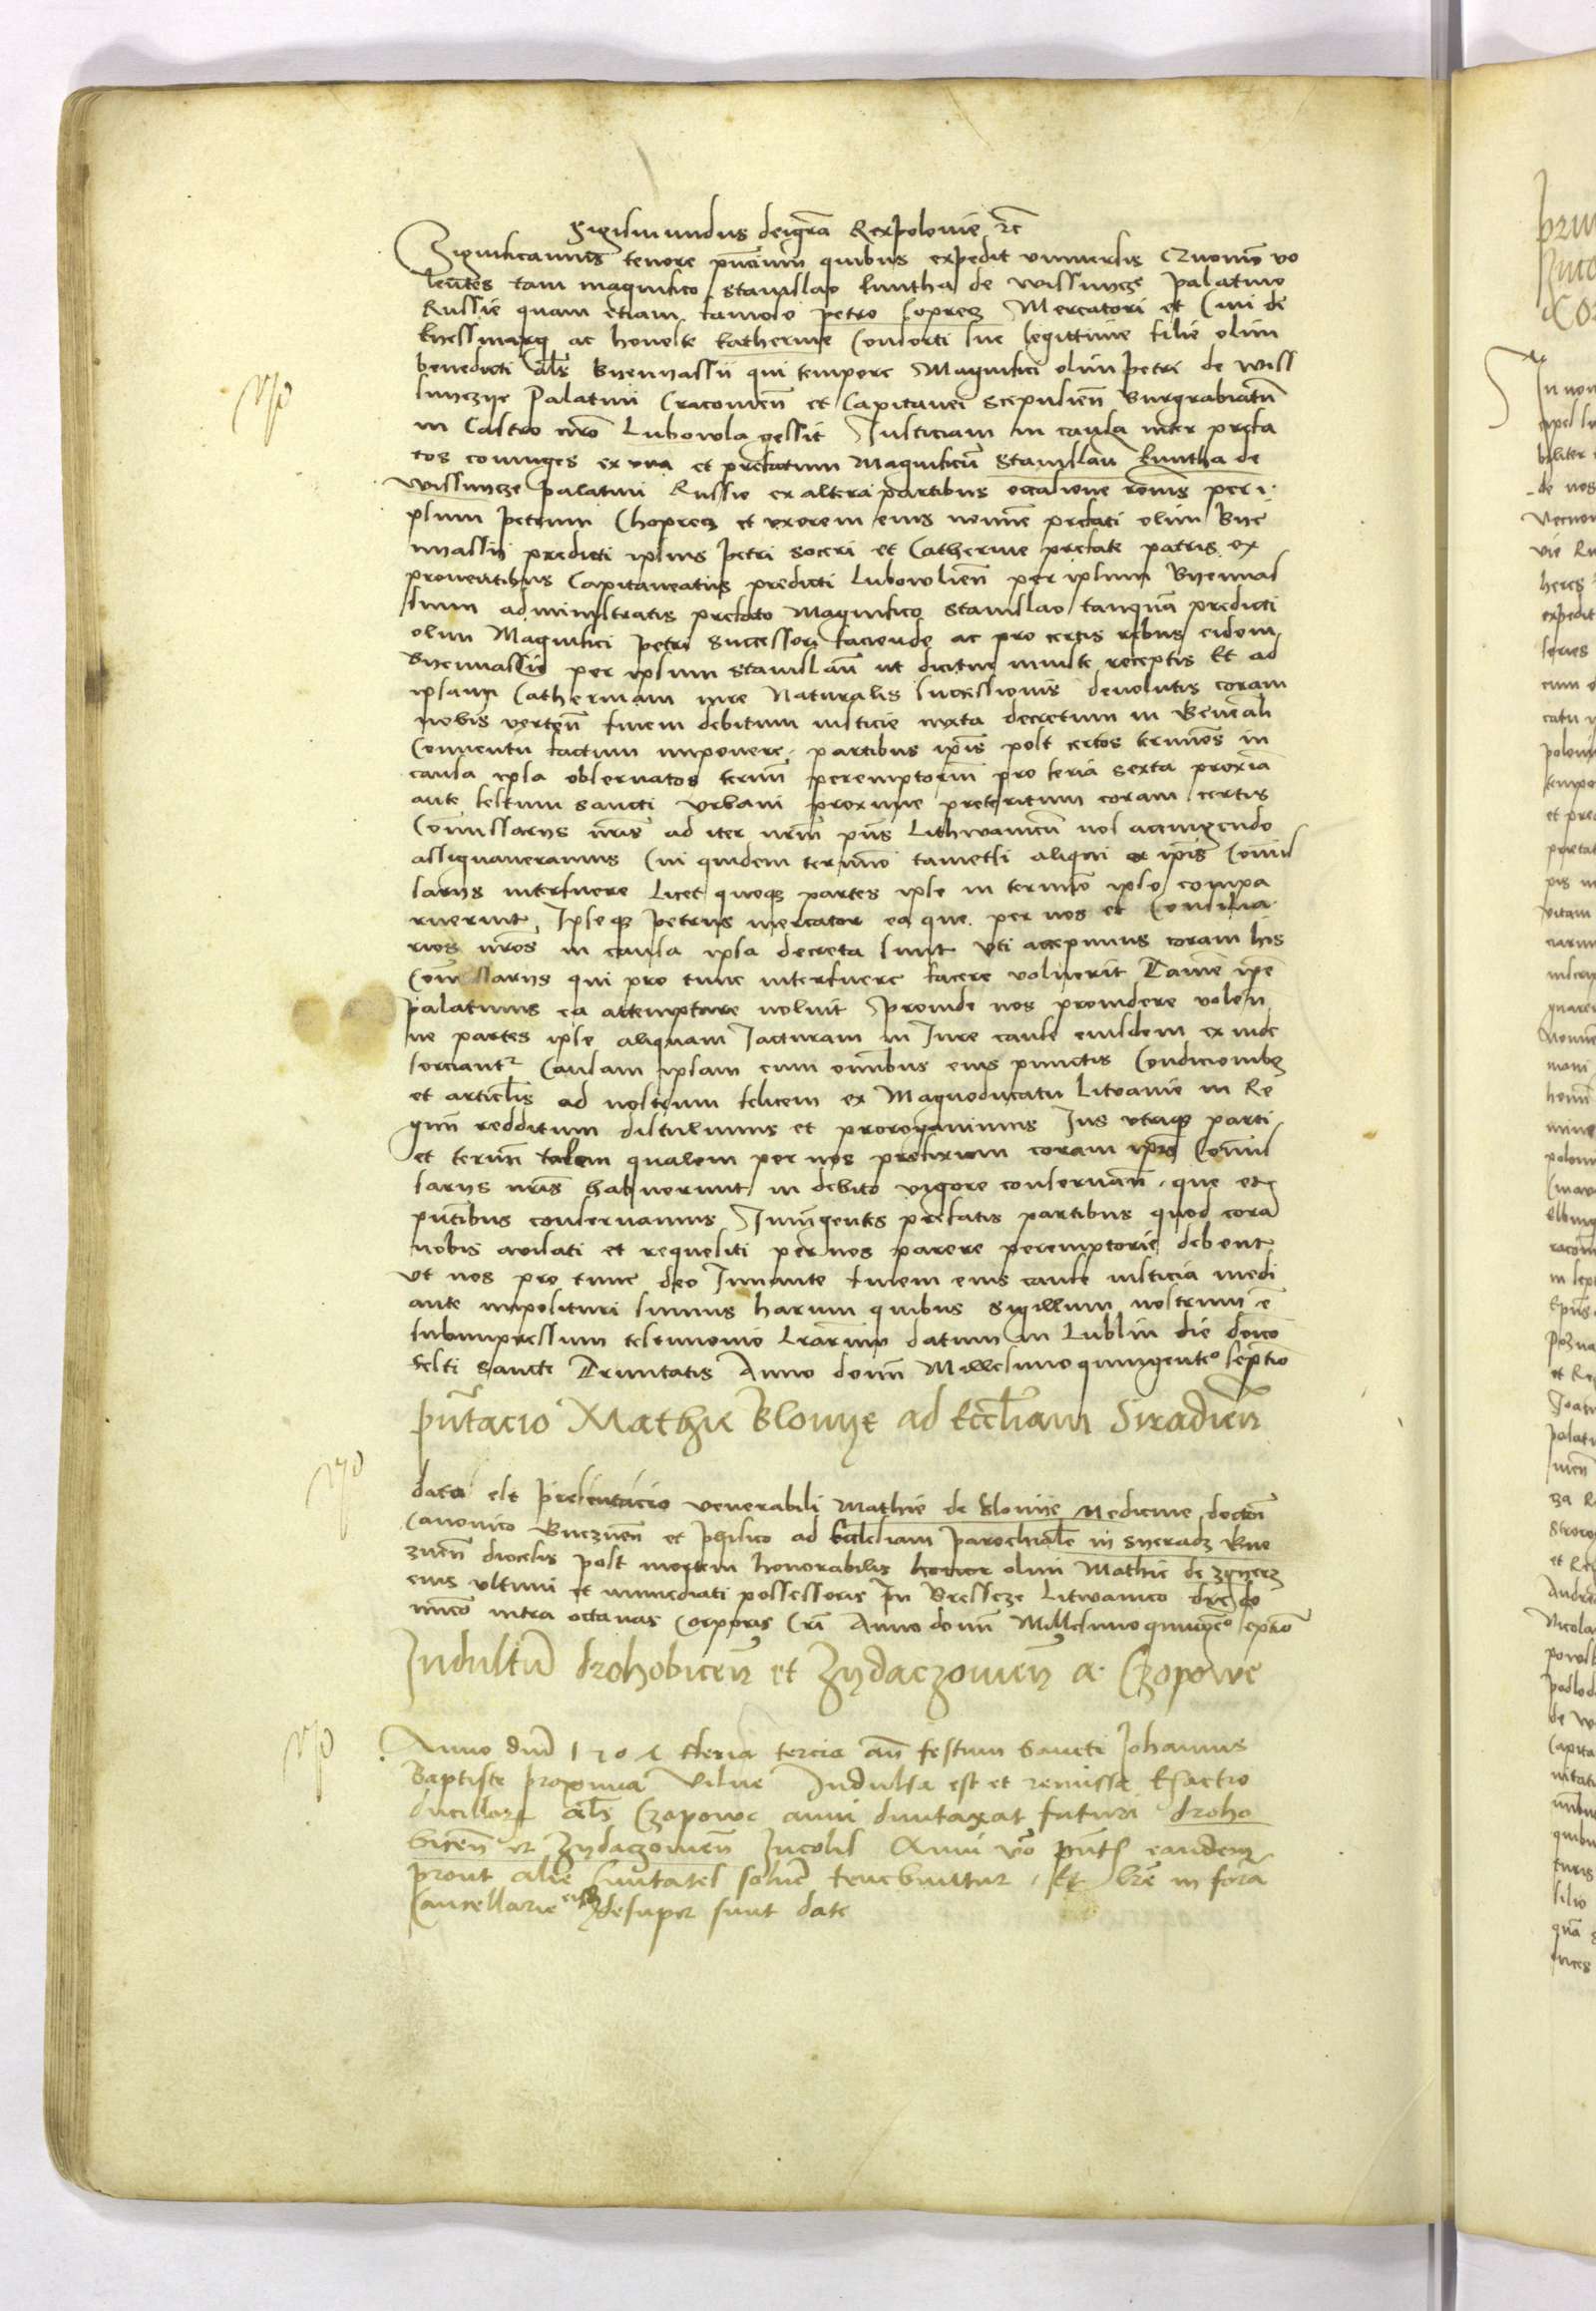 Sigismundus dei gra Rex polonie rc
Significamus tenore pntium quibus expedit universis Quomodo vo
lentes tam magnifico Stanislao kmytha de wissnycze palatino
Russie quam etiam famoso petro Coprez Mercatori et Civi de
kyessmarg ac honeste katherine Consorti sue legittime filie olim
benedicti als Byernassii qui tempore Magnifici olim petri de wiss
Palatini Cracovien et Capitanei Scepusien Burgrabiatum
in Castro nro Lubowla gessit Justiciam in causa inter prefa
tos coniuges ex una et prefatum Magnificum Stanislau kmytha de
wissnycze palatini Russie ex altera partibus occasione per i
psum petrum Choprez et uxorem eius prefati olim Byer
nassii predicti ipsius petri soceri et Catherine prefate patris ex
proventibus Capitaneatus predicti Lubowlien per ipsum Byernas
sium administratis prefato Magnifico Stanislao tanquam predicti
olim Magnifici petri Successori faciende ac pro certis rebus eidem
Byernassio per ipsum Stanislaum ut dicitur iniuste receptis Et ad
ipsam Catherinam iure Naturalis successionis devolutis coram
nobis verten finem debitum iusticie iuxta decretum in Generali
Conventu factum imponere partibus ipsis post certos terminos in
causa ipsa observatos terminum peremptorium pro feria sexta proxima
ante festum sancti Urbani proxime preteritum coram certis
Commissariis nris ad iter nrm Lithwanicum nos accingendo
assignaveramus Cui quidem termino tametsi aliqui ex ipsis Commis
sariis interfuere licet queque partes ipse in termino ipso compa
ruerint Ipseque petrus mercator ea que per nos et Commissa
rios nros in causa ipsa decreta sunt uti accepimus coram his
Commissariis qui pro tunc interfuere facere voluerit Tamen ipse
palatinus ea attemptare noluit proinde nos providere volen
ne partes ipse aliquam Jacturam in Jure cause eiusdem ex inde
sorciantr Causam ipsam cum omnibus eius punctis Condicionibus
et articulis ad nostrum felicem ex Magnoducatu Litvanie in Re
gnum redditum distulimus et prorogavimus Jus utrique parti
et terminum talem qualem per nos prefixum coram ipsis Commis
sariis nris habuerunt in debito vigore conservan que et
pntibus conservamus Iniungentes prefatis partibus quod coram
nobis avisati et requisiti per nos parere peremptorie debent
ut nos pro tunc deo Juvante finem eius cause iusticia medi
ante imposituri simus harum quibus Sigillum nostrum e
subimpressum testimonio lrarum datum in Lublin die dnico
festi Sancte Trinitatis Anno domini Millesimo quingentesimo septimo
pntacio Mathie Blonye ad Eccliam Siradien
data est presentacio venerabili Mathie de blonije Medicine doctori
Canonico Gneznen et phisico ad Ecclesiam parochiale in Syeradz Gne
znen diocesis post mortem honorabilis olim Mathie de
eius ultimi et immediati possessoris In Bressze Litwanico die do
minico intra octavas Corporis Cri Anno domini Millesimo quingeno septio
Indultum drohobicen et Zydaczovien a Czopowe
Anno dni feria tercia an festum Sancti Johannis
Baptiste proxima Vilne Indulta est et remissa Exactio
ducillaris als Czopowe anni duntaxat futuri droho
bicen et Zydaczovien Incolis Anni vero pntis eandem
prout alie Civitates solvere tenebuntur Et lre in forma
Cancellarie eisdem desuper sunt date